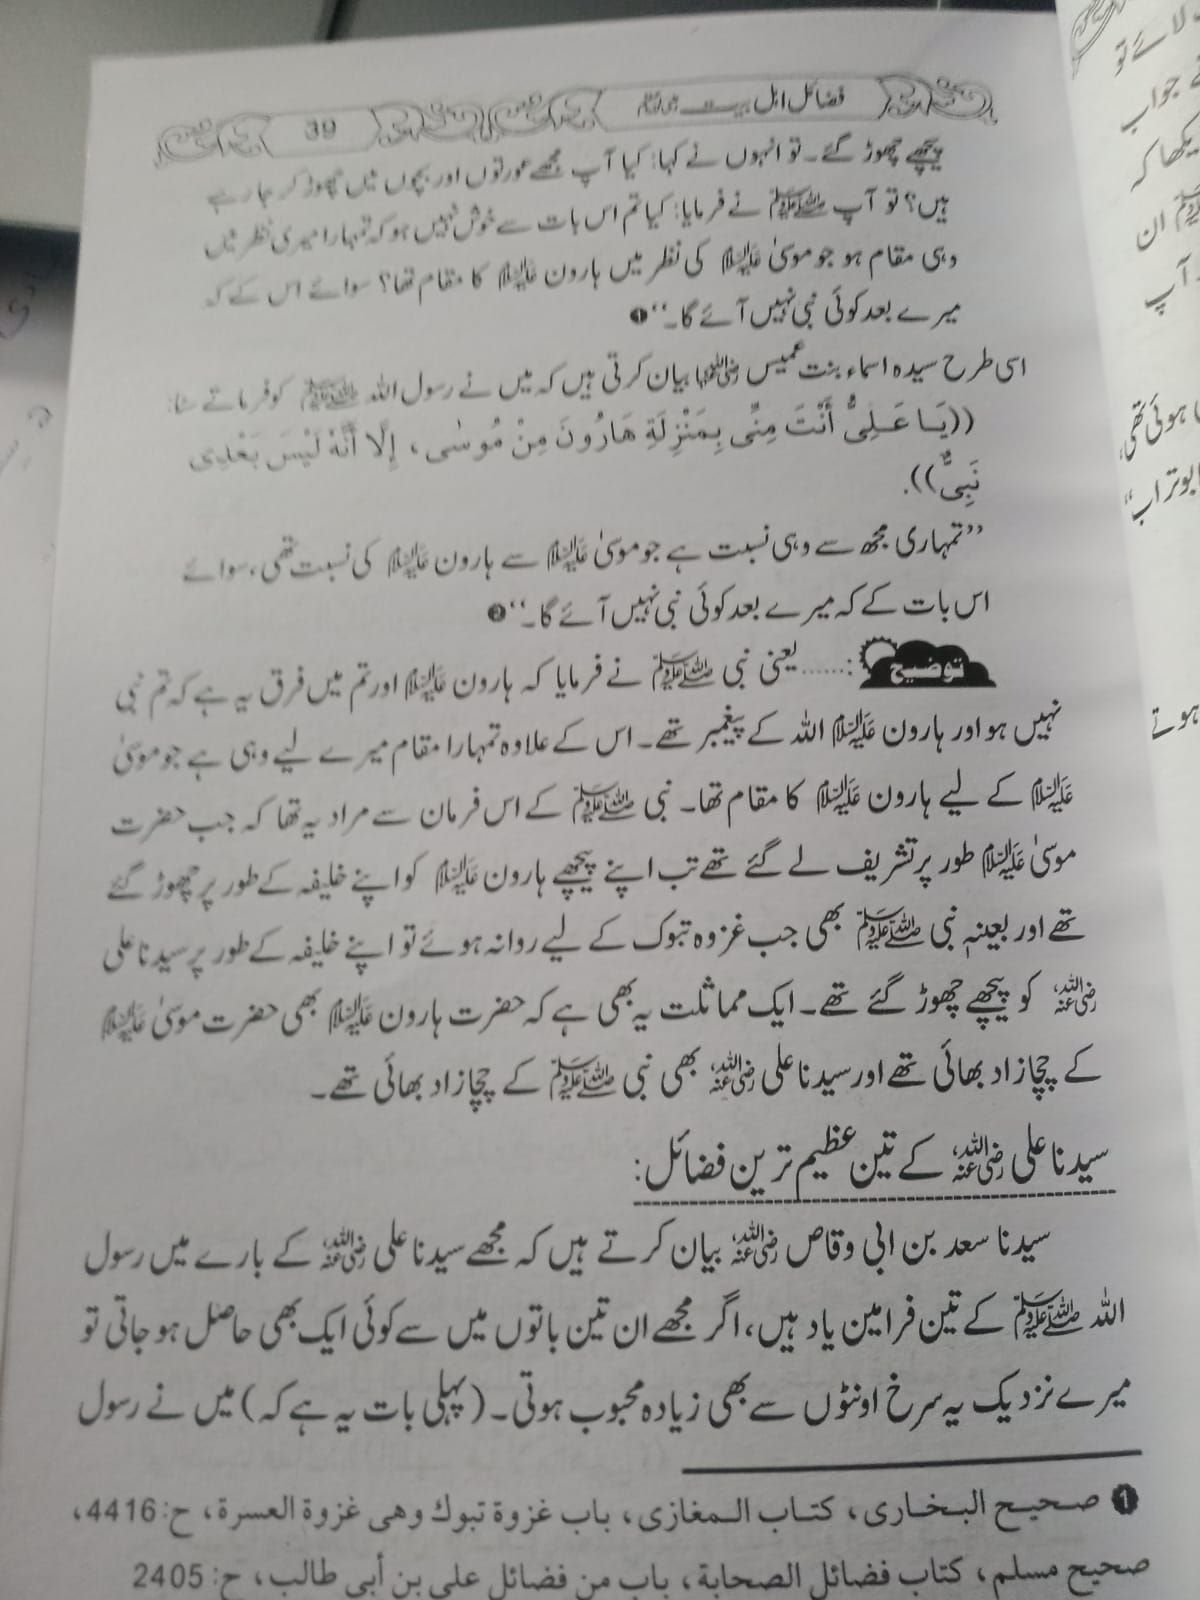 فضائل اہل بیت رضی اللہ عنہم 39
پیچھے چھوڑ گئے۔ تو انہوں نے کہا: کیا آپ مجھے عورتوں اور بچوں میں چھوڑ کر جا رہے
ہیں؟ تو آپ ﷺ نے فرمایا: کیا تم اس بات سے خوش نہیں ہو کہ تمہارا میری نظر میں
وہی مقام ہو جو موسیٰ علیہ السلام کی نظر میں ہارون علیہ السلام کا مقام تھا؟ سوائے اس کے کہ
میرے بعد کوئی نبی نہیں آئے گا۔‘‘ ❶
اسی طرح سیدہ اسماء بنت عمیس رضی اللہ عنہا بیان کرتی ہیں کہ میں نے رسول اللہ ﷺ کو فرماتے سنا:
((يَا عَلِيُّ أَنْتَ مِنِّي بِمَنْزِلَةِ هَارُونَ مِنْ مُوسٰى، إِلَّا أَنَّهُ لَيْسَ بَعْدِي
نَبِيٌّ)).
’’تمہاری مجھ سے وہی نسبت ہے جو موسیٰ علیہ السلام سے ہارون علیہ السلام کی نسبت تھی، سوائے
اس بات کے کہ میرے بعد کوئی نبی نہیں آئے گا۔‘‘ ❷
توضیح :...... یعنی نبی ﷺ نے فرمایا کہ ہارون علیہ السلام اور تم میں فرق یہ ہے کہ تم نبی
نہیں ہو اور ہارون علیہ السلام اللہ کے پیغمبر تھے۔ اس کے علاوہ تمہارا مقام میرے لیے وہی ہے جو موسیٰ
علیہ السلام کے لیے ہارون علیہ السلام کا مقام تھا۔ نبی ﷺ کے اس فرمان سے مراد یہ تھا کہ جب حضرت
موسیٰ علیہ السلام طور پر تشریف لے گئے تھے تب اپنے پیچھے ہارون علیہ السلام کو اپنے خلیفہ کے طور پر چھوڑ گئے
تھے اور بعینہٖ نبی ﷺ بھی جب غزوہ تبوک کے لیے روانہ ہوئے تو اپنے خلیفہ کے طور پر سیدنا علی
رضی اللہ عنہ کو پیچھے چھوڑ گئے تھے۔ ایک مماثلت یہ بھی ہے کہ حضرت ہارون علیہ السلام بھی حضرت موسیٰ علیہ السلام
کے چچازاد بھائی تھے اور سیدنا علی رضی اللہ عنہ بھی نبی ﷺ کے چچازاد بھائی تھے۔
سیدنا علی رضی اللہ عنہ کے تین عظیم ترین فضائل:
سیدنا سعد بن ابی وقاص رضی اللہ عنہ بیان کرتے ہیں کہ مجھے سیدنا علی رضی اللہ عنہ کے بارے میں رسول
اللہ ﷺ کے تین فرامین یاد ہیں، اگر مجھے ان تین باتوں میں سے کوئی ایک بھی حاصل ہو جاتی تو
میرے نزدیک یہ سرخ اونٹوں سے بھی زیادہ محبوب ہوتی۔ (پہلی بات یہ ہے کہ) میں نے رسول
❶ صحيح البخاري، كتاب المغازي، باب غزوة تبوك وهي غزوة العسرة، ح: 4416،
صحيح مسلم، كتاب فضائل الصحابة، باب من فضائل علي بن أبي طالب، ح: 2405
لائے تو
جواب
دیکھا کہ
ﷺ ان
آپ
ہوئی تھی،
ابوتراب‘‘
ہوتے